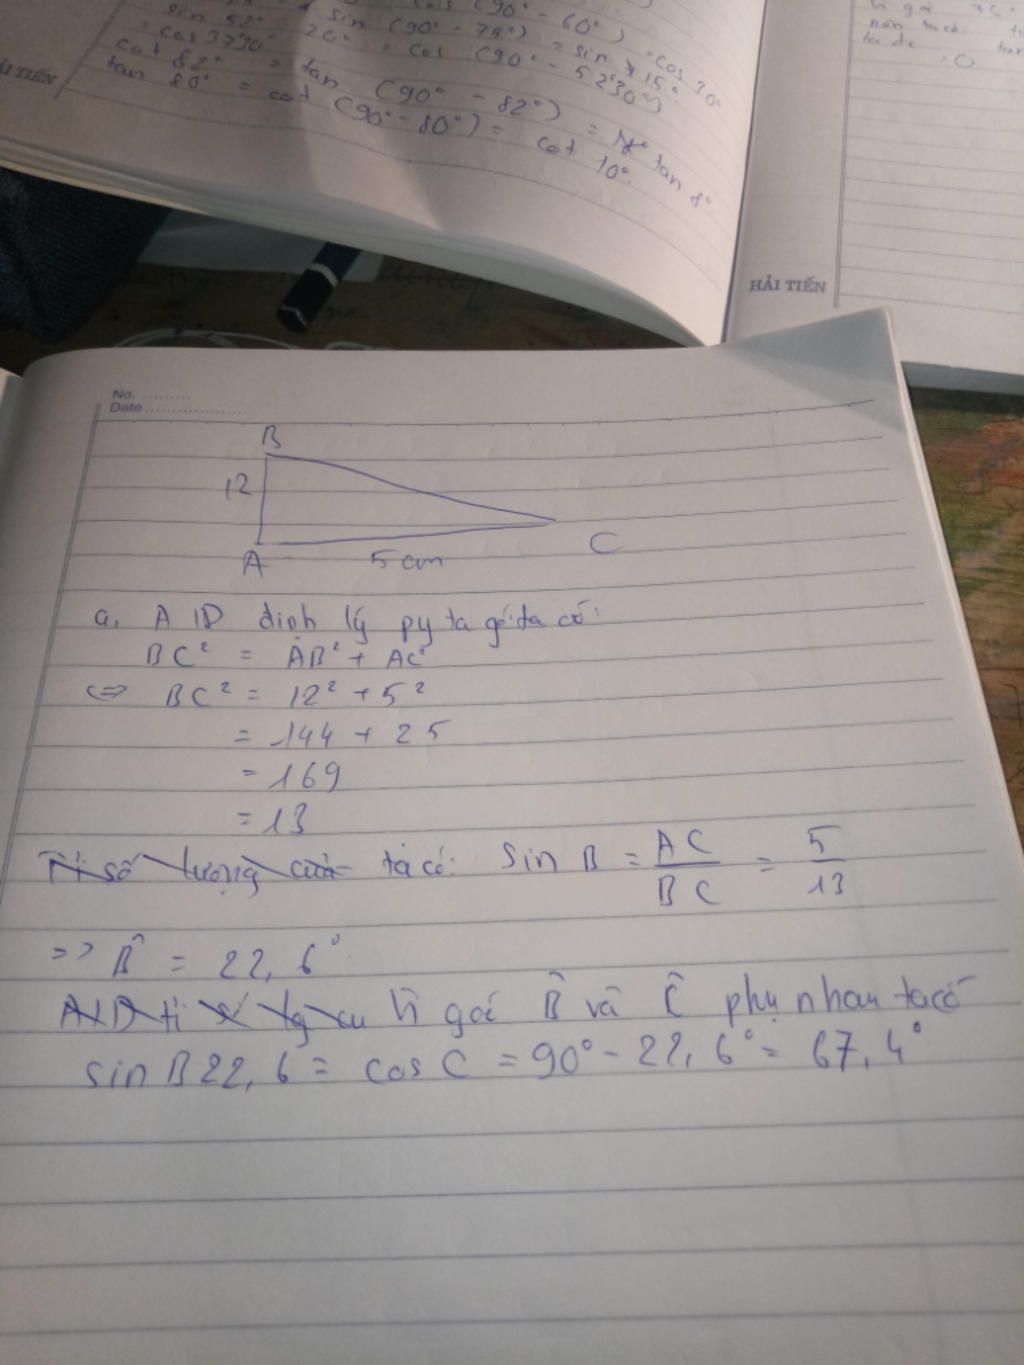 cos (90° - 60°) = cos 30°
sin (90° - 75°) = sin 15°
sin 52° = cos (90° - 52°30')
= cos 37°30'
cot 82° = tan (90° - 82°) = tan 8°
tan 80° = cot (90° - 80°) = cot 10°.
HẢI TIẾN
No. .........
Date ..................
B
12
A
5 cm
C
a, A/D định lý py ta gó ta có:
BC² = AB² + AC²
<=> BC² = 12² + 5²
= 144 + 25
= 169
= 13
Tỉ số lượng của ta có: sin B = AC/BC = 5/13
=> B̂ = 22,6°
Vì góc B̂ và Ĉ phụ nhau ta có
sin B 22,6 = cos C = 90° - 22,6° = 67,4°